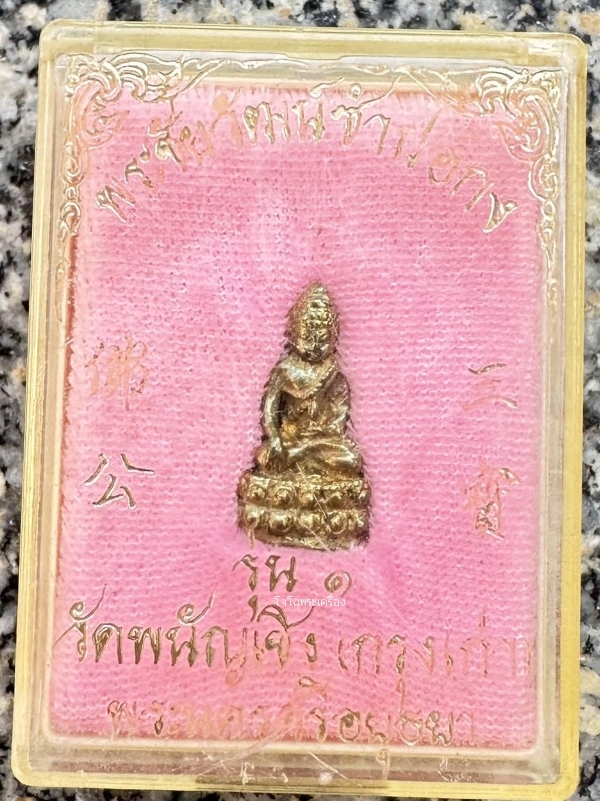 พระชัยวัฒน์ซำปอกง
佛 三
公 寶
รุ่น ๑
โจโฉพระเครื่อง
วัดพนัญเชิง (กรุงเก่า)
พระนครศรีอยุธยา